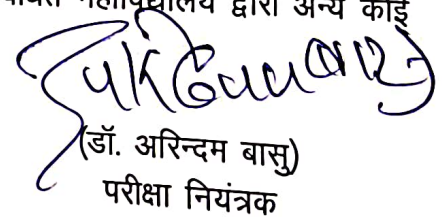 महाविद्यालय द्वारा अन्य कोई
(डॉ. अरिन्दम बासु)
परीक्षा नियंत्रक